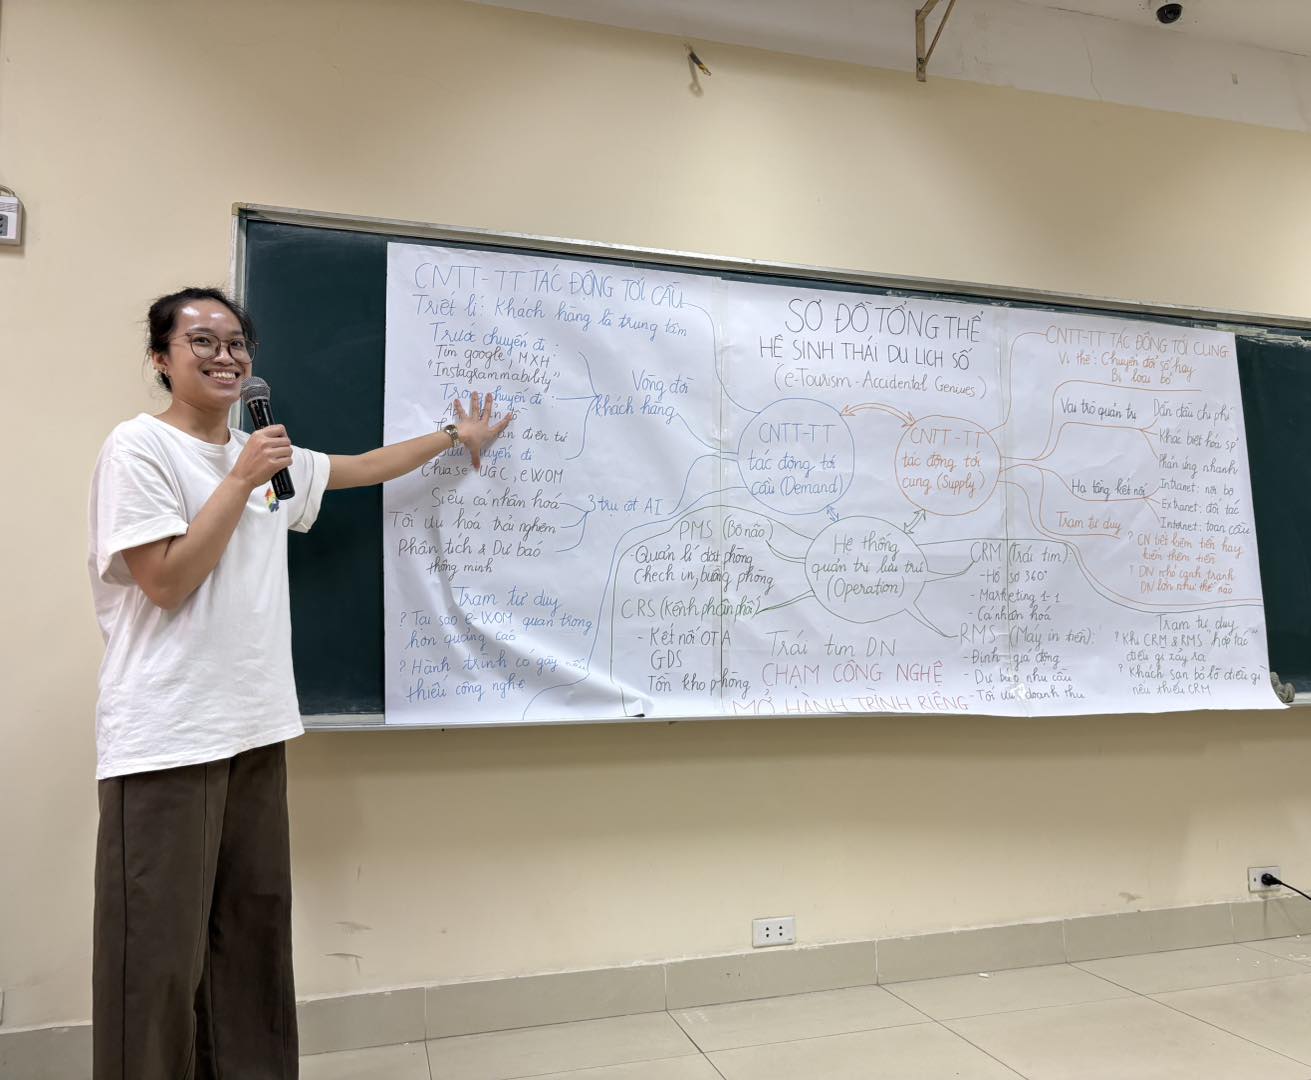 CNTT-TT TÁC ĐỘNG TỚI CẦU
Triết lí: Khách hàng là trung tâm
Trước chuyến đi:
Tìm google, MXH
"Instagrammability"
chuyến đi:
điện tử
chuyến đi
Chia sẻ UGC, eWOM
Vòng đời
khách hàng
Siêu cá nhân hoá
Tối ưu hoá trải nghiệm
Phân tích & Dự báo
thông minh
3 trụ cột AI
Trạm tư duy
? Tại sao e-WOM quan trọng
hơn quảng cáo
? Hành trình có gãy nếu
thiếu công nghệ
SƠ ĐỒ TỔNG THỂ
HỆ SINH THÁI DU LỊCH SỐ
(e-Tourism - Accidental Geniuses)
CNTT-TT
tác động tới
cầu (Demand)
CNTT-TT
tác động tới
cung (Supply)
Hệ thống
quản trị lưu trú
(Operation)
PMS (Bộ não)
- Quản lí đặt phòng
Chech in, buồng phòng
CRS (Kênh phân phối)
- Kết nối OTA
GDS
Tồn kho phòng
Trái tim DN
CHẠM CÔNG NGHỆ
MỞ HÀNH TRÌNH RIÊNG
CRM (Trái tim):
- Hồ sơ 360°
- Marketing 1-1
- Cá nhân hoá
RMS (Máy in tiền):
- Định giá động
- Dự báo nhu cầu
- Tối ưu doanh thu
CNTT-TT TÁC ĐỘNG TỚI CUNG
Vị thế: Chuyển đổi số hay
Bị loại bỏ
Vai trò quản trị
Dẫn đầu chi phí
Khác biệt hóa SP
Phản ứng nhanh
Hạ tầng kết nối
Intranet: nội bộ
Extranet: đối tác
Internet: toàn cầu
Trạm tư duy
? CN tiết kiệm tiền hay
kiếm thêm tiền
? DN nhỏ cạnh tranh
DN lớn như thế nào
Trạm tư duy
? Khi CRM & RMS "hợp tác"
điều gì xảy ra
? Khách sạn bỏ lỡ điều gì
nếu thiếu CRM